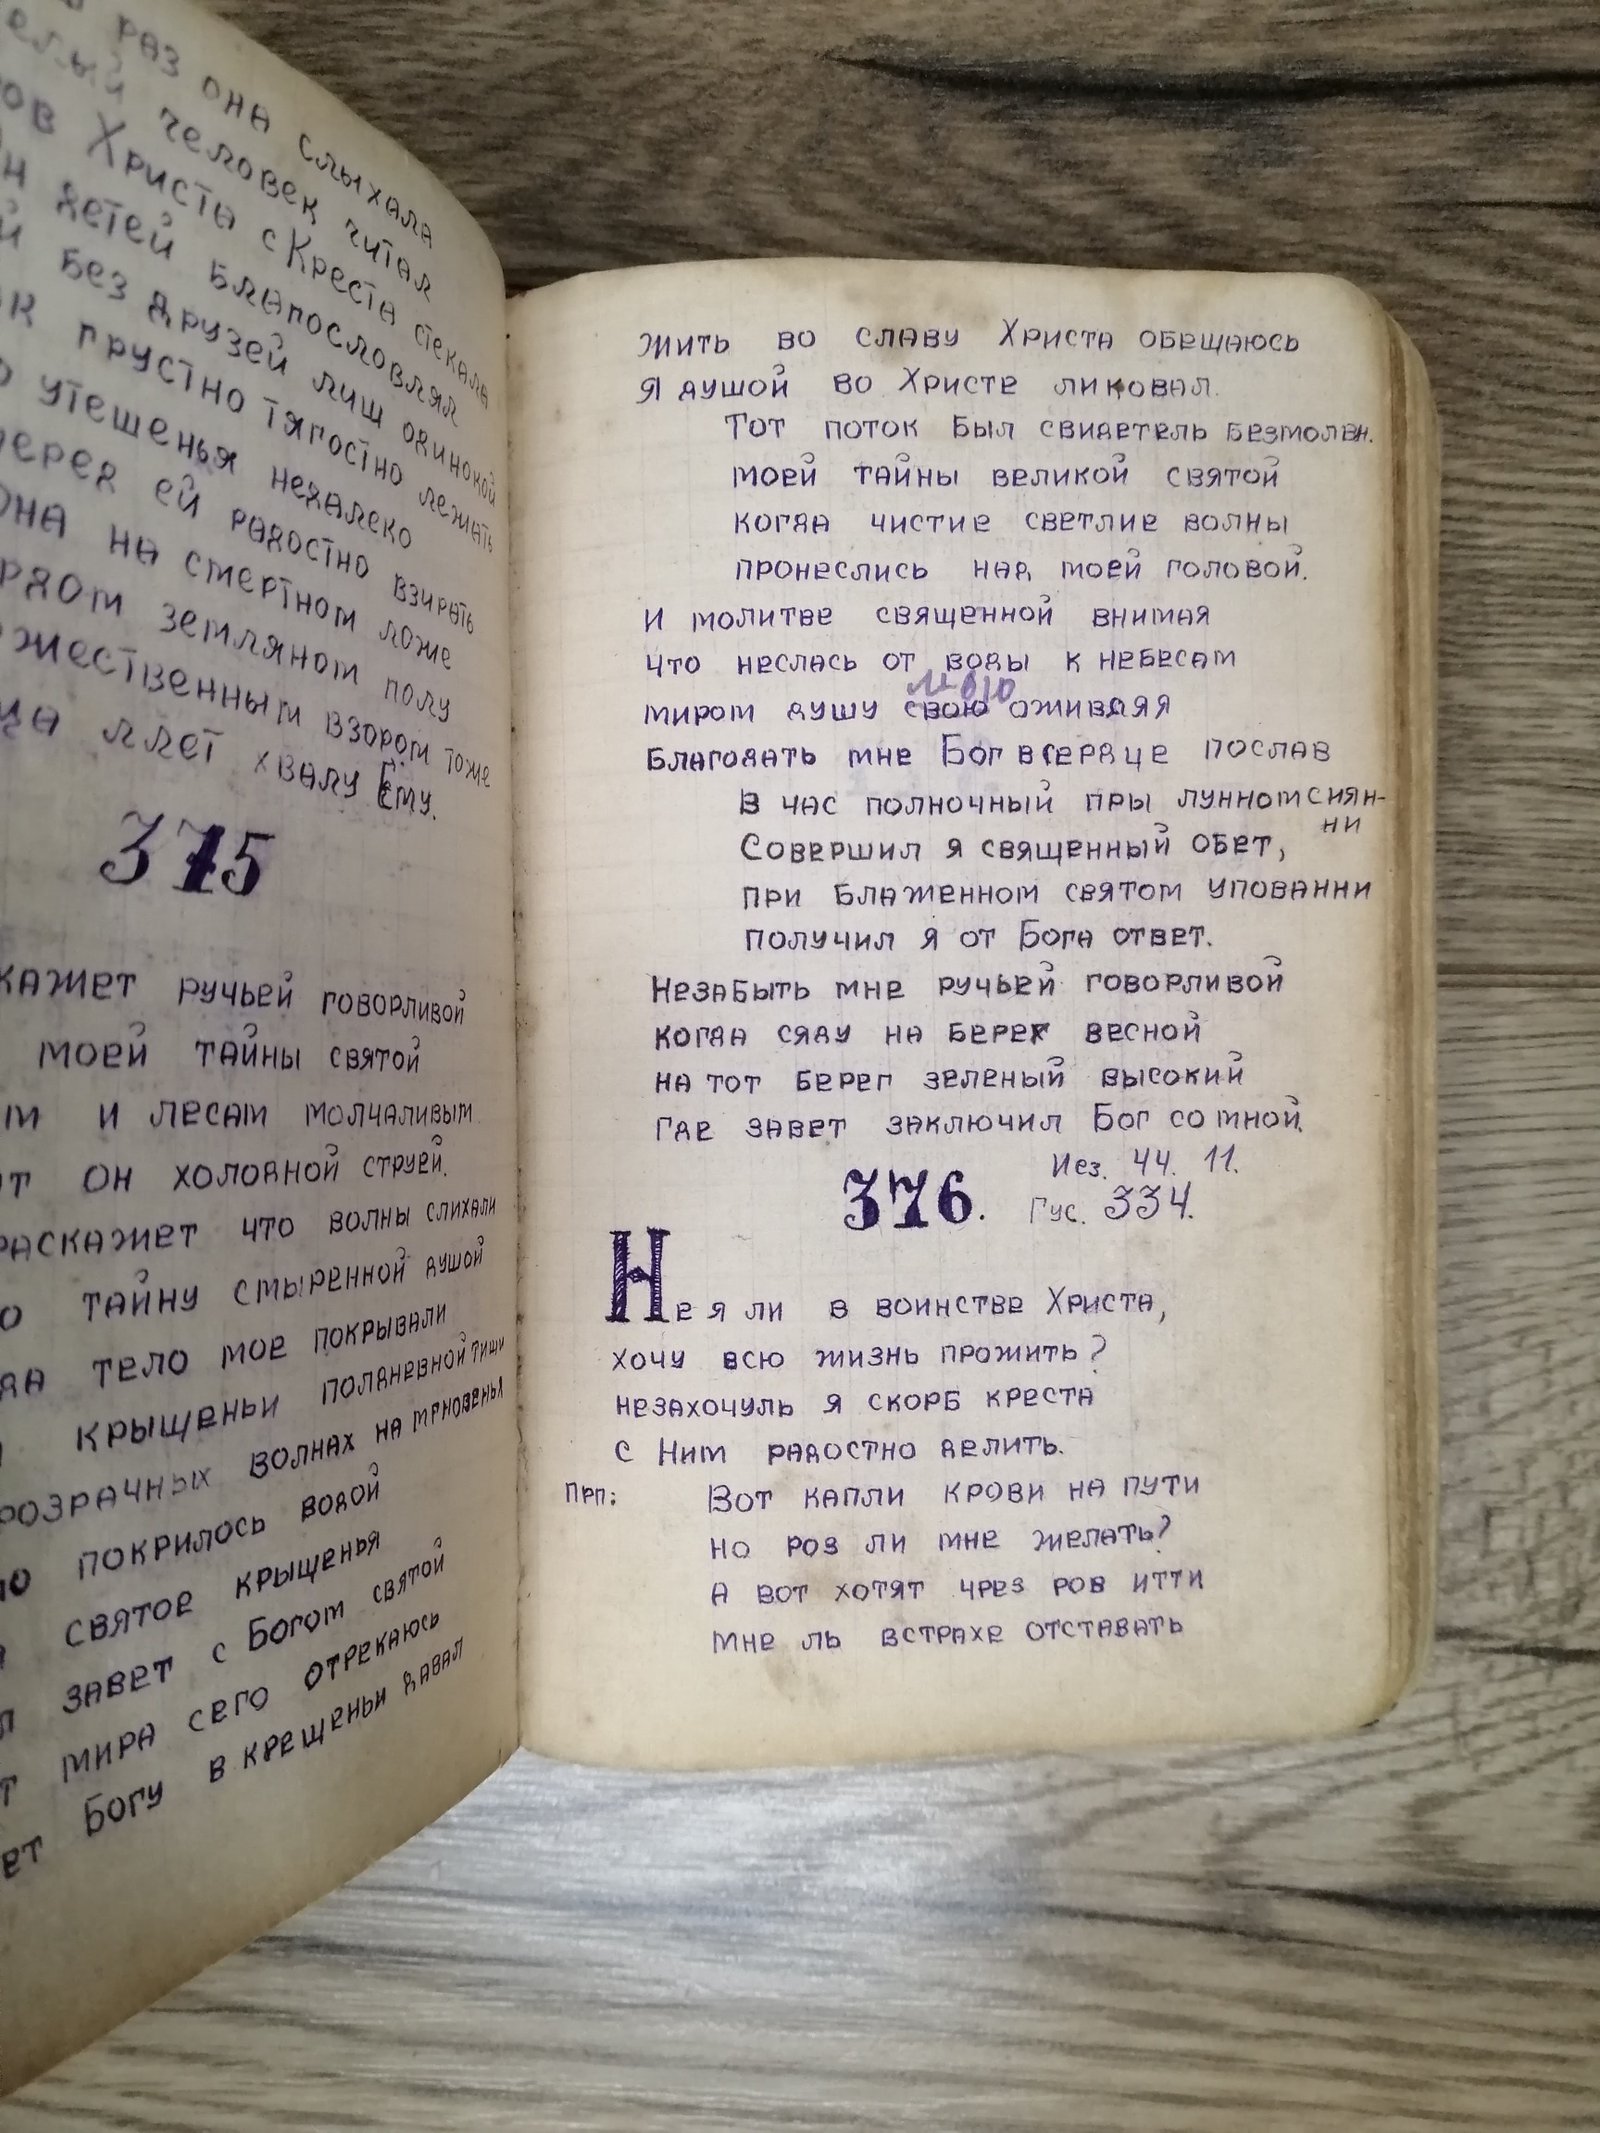 раз она слыхала
человек читал
Христа с Креста стекала
детей благословлял
Без друзей лиш одинокой
грустно тягостно лежать
утешенья недалеко
перед ей радостно взирать
Она на смертном ложе
земляном полу
взором тоже
ллет хвалу Ему.
375
ручьей говорливой
моей тайны святой
и лесам молчаливым
он холодной струей.
что волны слихали
тайну смыренной душой
тело мое покрывали
крыщеньи полдневной тиши
волнах на мгновенья
покрилось водой
святое крыщенья
завет с Богом святой
мира сего отрекаюсь
Богу в крещеньи давал
жить во славу Христа обещаюсь
Я душой во Христе ликовал.
Тот поток был свидетель безмолвн.
моей тайны великой святой
когда чистие светлие волны
пронеслись над моей головой.
И молитве священной внимая
что неслась от воды к небесам
мою
миром душу свою оживляя
Благодать мне Бог в сердце послав
В час полночный пры лунном сиян-
ни
Совершил я священный обет,
при блаженном святом упованни
получил я от Бога ответ.
Незабыть мне ручьей говорливой
когда сяду на берег весной
на тот берег зеленый высокий
где завет заключил Бог со мной.
Иез. 44. 11.
376. Гус. 334.
Не я ли в воинстве Христа,
хочу всю жизнь прожить?
незахочуль я скорб креста
с Ним радостно делить.
Прп: Вот капли крови на пути
но роз ли мне желать?
А вот хотят чрез ров итти
мне ль встрахе отставать